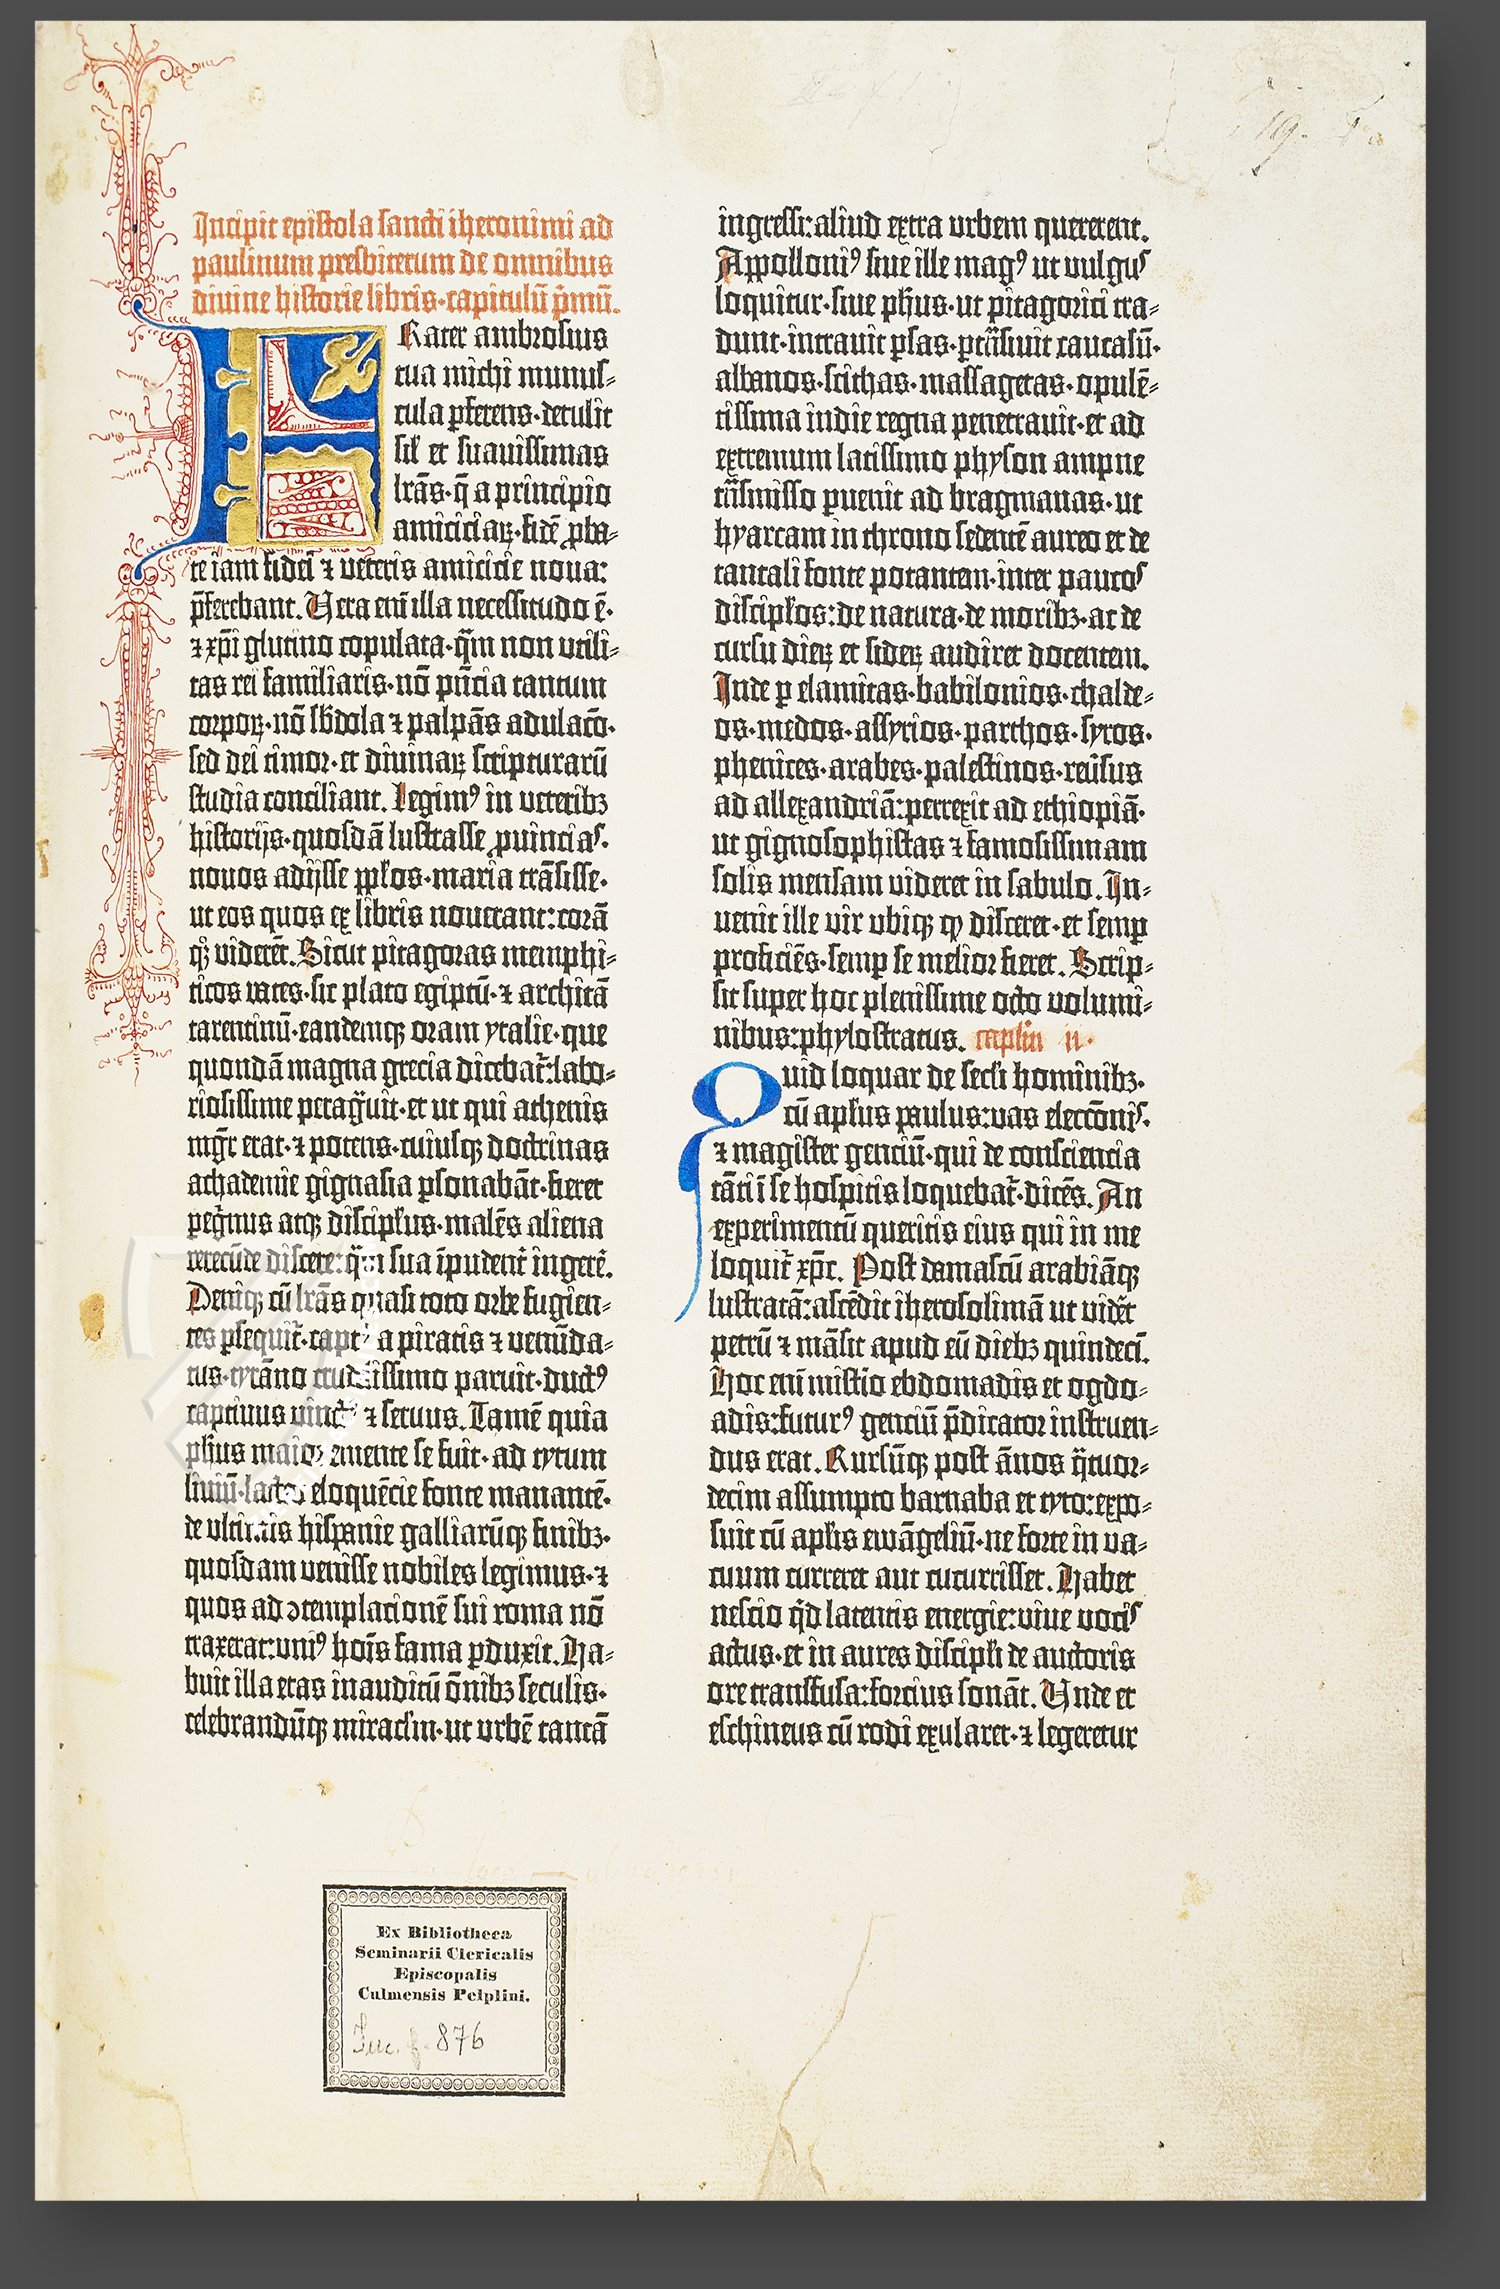 Incipit epistola sancti iheronimi ad
paulinum presbiterum de omnibus
divine historie libris·capitulū p̄mū.
FRater ambrosius
tua michi munus⸗
cula ꝑferens·detulit
sil̓ et suavissimas
lr̄as·q̄ a principio
amiciciaꝝ·fidē ꝓba⸗
te iam fidei ⁊ veteris amicicie nova:
p̄ferebant. Vera eni̅ illa necessitudo ē·
⁊ xp̄i glutino copulata·q̄m non utili⸗
tas rei familiaris·nō pn̄cia tantum
corpoꝝ·nō sb̓dola ⁊ palpās adulacō·
sed dei timor·et divinaꝝ scripturarū
studia conciliant. Legimꝰ in veteribꝫ
historijs·quosdā lustrasse ꝓvincias·
novos adijsse ppl̓os·maria trāsisse·
ut eos quos ex libris noverant:corā
qꝫ viderēt. Sicut pitagoras memphi⸗
ticos vates·sic plato egiptū·⁊ architā
tarentinū·eandemqꝫ oram ytalie·que
quondā magna grecia dicebat̄:labo⸗
riosissime peragᷓvit·et ut qui athenis
mgr̄ erat·⁊ potens·cuiusqꝫ doctrinas
achademie gignasia ꝑsonabāt·fieret
pegͥnus atqꝫ discipl̓us·malēs aliena
verecūde discere:qᷓm sua īpudent̄ ingerē.
Deniqꝫ cū lr̄as quasi toto orbe fugien⸗
tes ꝑsequit̄·captꝰ a piratis ⁊ venūda⸗
tus·tyrāno crudelissimo paruit·ductꝰ
captivus vinctꝰ ⁊ servus. Tamē quia
ph̓us maior emente se fuit·ad tytum
liviū·lacteo eloquēcie fonte manantē·
de ultimis hispanie galliarūqꝫ finibꝫ·
quosdam venisse nobiles legimus·⁊
quos ad ↄtemplacionē sui roma nō
traxerat:uniꝰ hoīs fama ꝑduxit. Ha⸗
buit illa etas inauditū ōnibꝫ seculis·
celebrandūqꝫ miraclm·ut urbē tantā
ingressi:aliud extra urbem quererent.
Appolloniꝰ sive ille magꝰ ut vulgus
loquitur·sive ph̓us·ut pitagorici tra⸗
dunt·intravit ꝑsas·ꝑtrāsivit caucasū·
albanos·scithas·massagetas·opulē⸗
tissima indie regna penetravit·et ad
extremum latissimo physon ampne
trāsmisso ꝑvenit ad bragmanas·ut
hyarcam in throno sedentē aureo et de
tantali fonte potantem·inter paucos
discipl̓os:de natura·de moribꝫ·ac de
cursu dieꝝ et sideꝝ audiret docentem.
Inde ꝑ elamitas·babilonios·chalde⸗
os·medos·assyrios·parthos·syros·
phenices·arabes·palestinos·revͥsus
ad allexandriā:perrexit ad ethiopiā·
ut gignosophistas ⁊ famosissimam
solis mensam videret in sabulo. In⸗
venit ille vir ubiqꝫ qd̓ disceret·et semꝑ
proficiēs·semꝑ se melior fieret. Scrip⸗
sit super hoc plenissime octo volumi⸗
nibus:phylostratus. caplm ii·
Quid loquar de secl̓i hominibꝫ·
cū apl̓us paulus:vas electōnis·
⁊ magister genciū·qui de consciencia
tāti ī se hospitis loquebat̄·dicēs. An
experimentū queritis eius qui in me
loquit̄ xp̄c. Post damascū arabiāqꝫ
lustratā:ascēdit iherosolimā ut vidēt
petrū ⁊ māsit apud eū diebꝫ quindeci̅.
Hoc eni̅ misterio ebdomadis et ogdo⸗
adis:futurꝰ genciū p̄dicator instruen⸗
dus erat. Rursūqꝫ post ānos qᷓtuor⸗
decim assumpto barnaba et tyto:expo⸗
suit cū apl̓is ewāgeliū·ne forte in va⸗
cuum curreret aut cucurrisset. Habet
nescio qͥd latentis energie:vive vocis
actus·et in aures discipl̓i de auctoris
ore transfusa:forcius sonāt. Unde et
eschineus cū rodi exularet·⁊ legeretur
Ex Bibliotheca
Seminarii Clericalis
Episcopalis
Culmensis Pelplini.
876